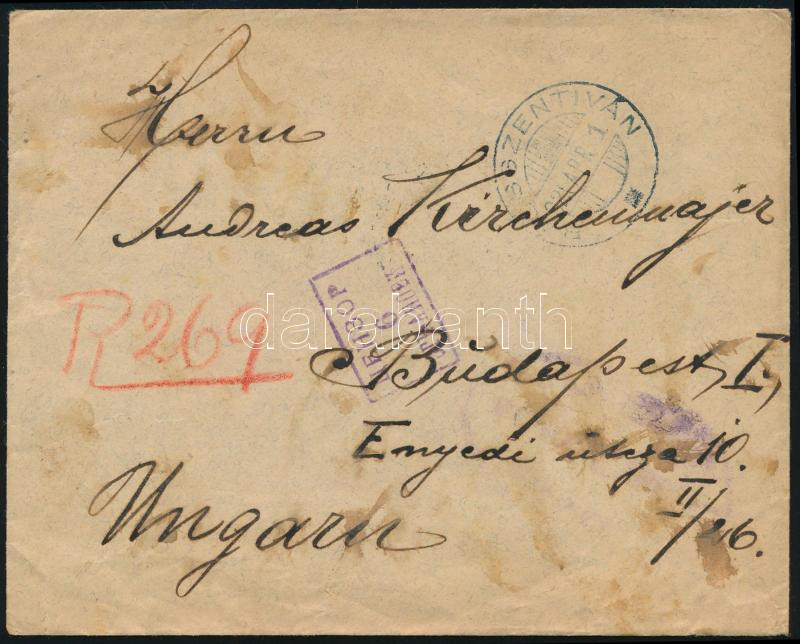 Herrn
Andreas Kirchenmajer
Budapest, I.,
Enyedi utcza 10.
II/26.
Ungarn
R 269
SZENTIVÁN
APR 1
6
darabanth